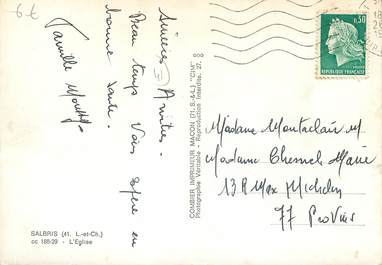 6 €
Sincères Amitiés.
Beau temps Vous espère en
bonne santé.
Famille
SALBRIS (41. L.-et-Ch.)
cc 188-29 - L'Eglise
COMBIER IMPRIMEUR MACON (71, S.-&-L.) "CIM"
Photographie Véritable - Reproduction Interdite. 27.
0,30
REPUBLIQUE FRANÇAISE
Madame Montaclair M.
Madame Marie
13 R Max Michelin
77 Provins